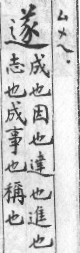 ムメヘ・
遂
成也因也達也進也
志也成事也稱也